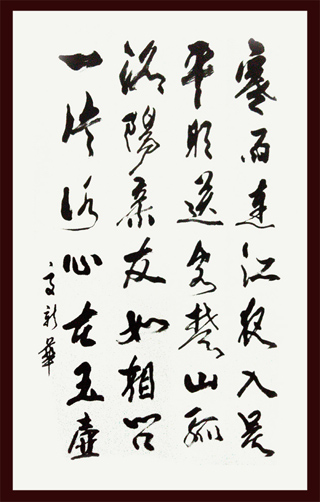 寒雨連江夜入吴
平明送客楚山孤
洛陽亲友如相问
一片冰心在玉壶
高新華